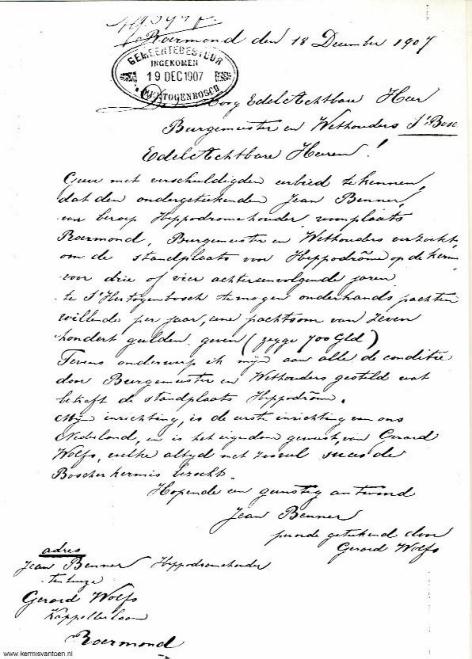 Roermond den 18 December 1907
GEMEENTEBESTUUR
INGEKOMEN
19 DEC 1907
HERTOGENBOSCH
Edel Achtbare Heer
Burgemeester en Wethouders S'Bos
Edel Achtbare Heeren!
Geeft met verschuldigden eerbied te kennen,
dat den ondergetekenden Jean Benner,
van beroep Hippodromhouder woonplaats
Roermond, Burgemeester en Wethouders verzoekt,
om de standplaats van Hippodrôme op de kermis
voor drie of vier achtereenvolgende jaren
te S'Hertogenbosch te mogen onderhands pachten
willende per jaar, eene pachtsom van zeven
hondert gulden geven (zegge 700 Gld)
Tevens onderwerp ik mijd aan alle de conditië
door Burgemeester en Wethouders gesteld wat
betreft de standplaats Hippodrôm.
Mijn inrichting, is de eerste inrichting van ons
Nederland, en is het eigendom geweest, van Gerard
Wolfs, welke altyd met zoveel succes de
Bossche kermis bezocht.
Hopende en gunstig antwoord
Jean Benner
getekend door
Gerard Wolfs
adres
Jean Benner Hippodromhouder
ten huize
Gerard Wolfs
Kappellerlaan
Roermond
www.kermisvantoen.nl